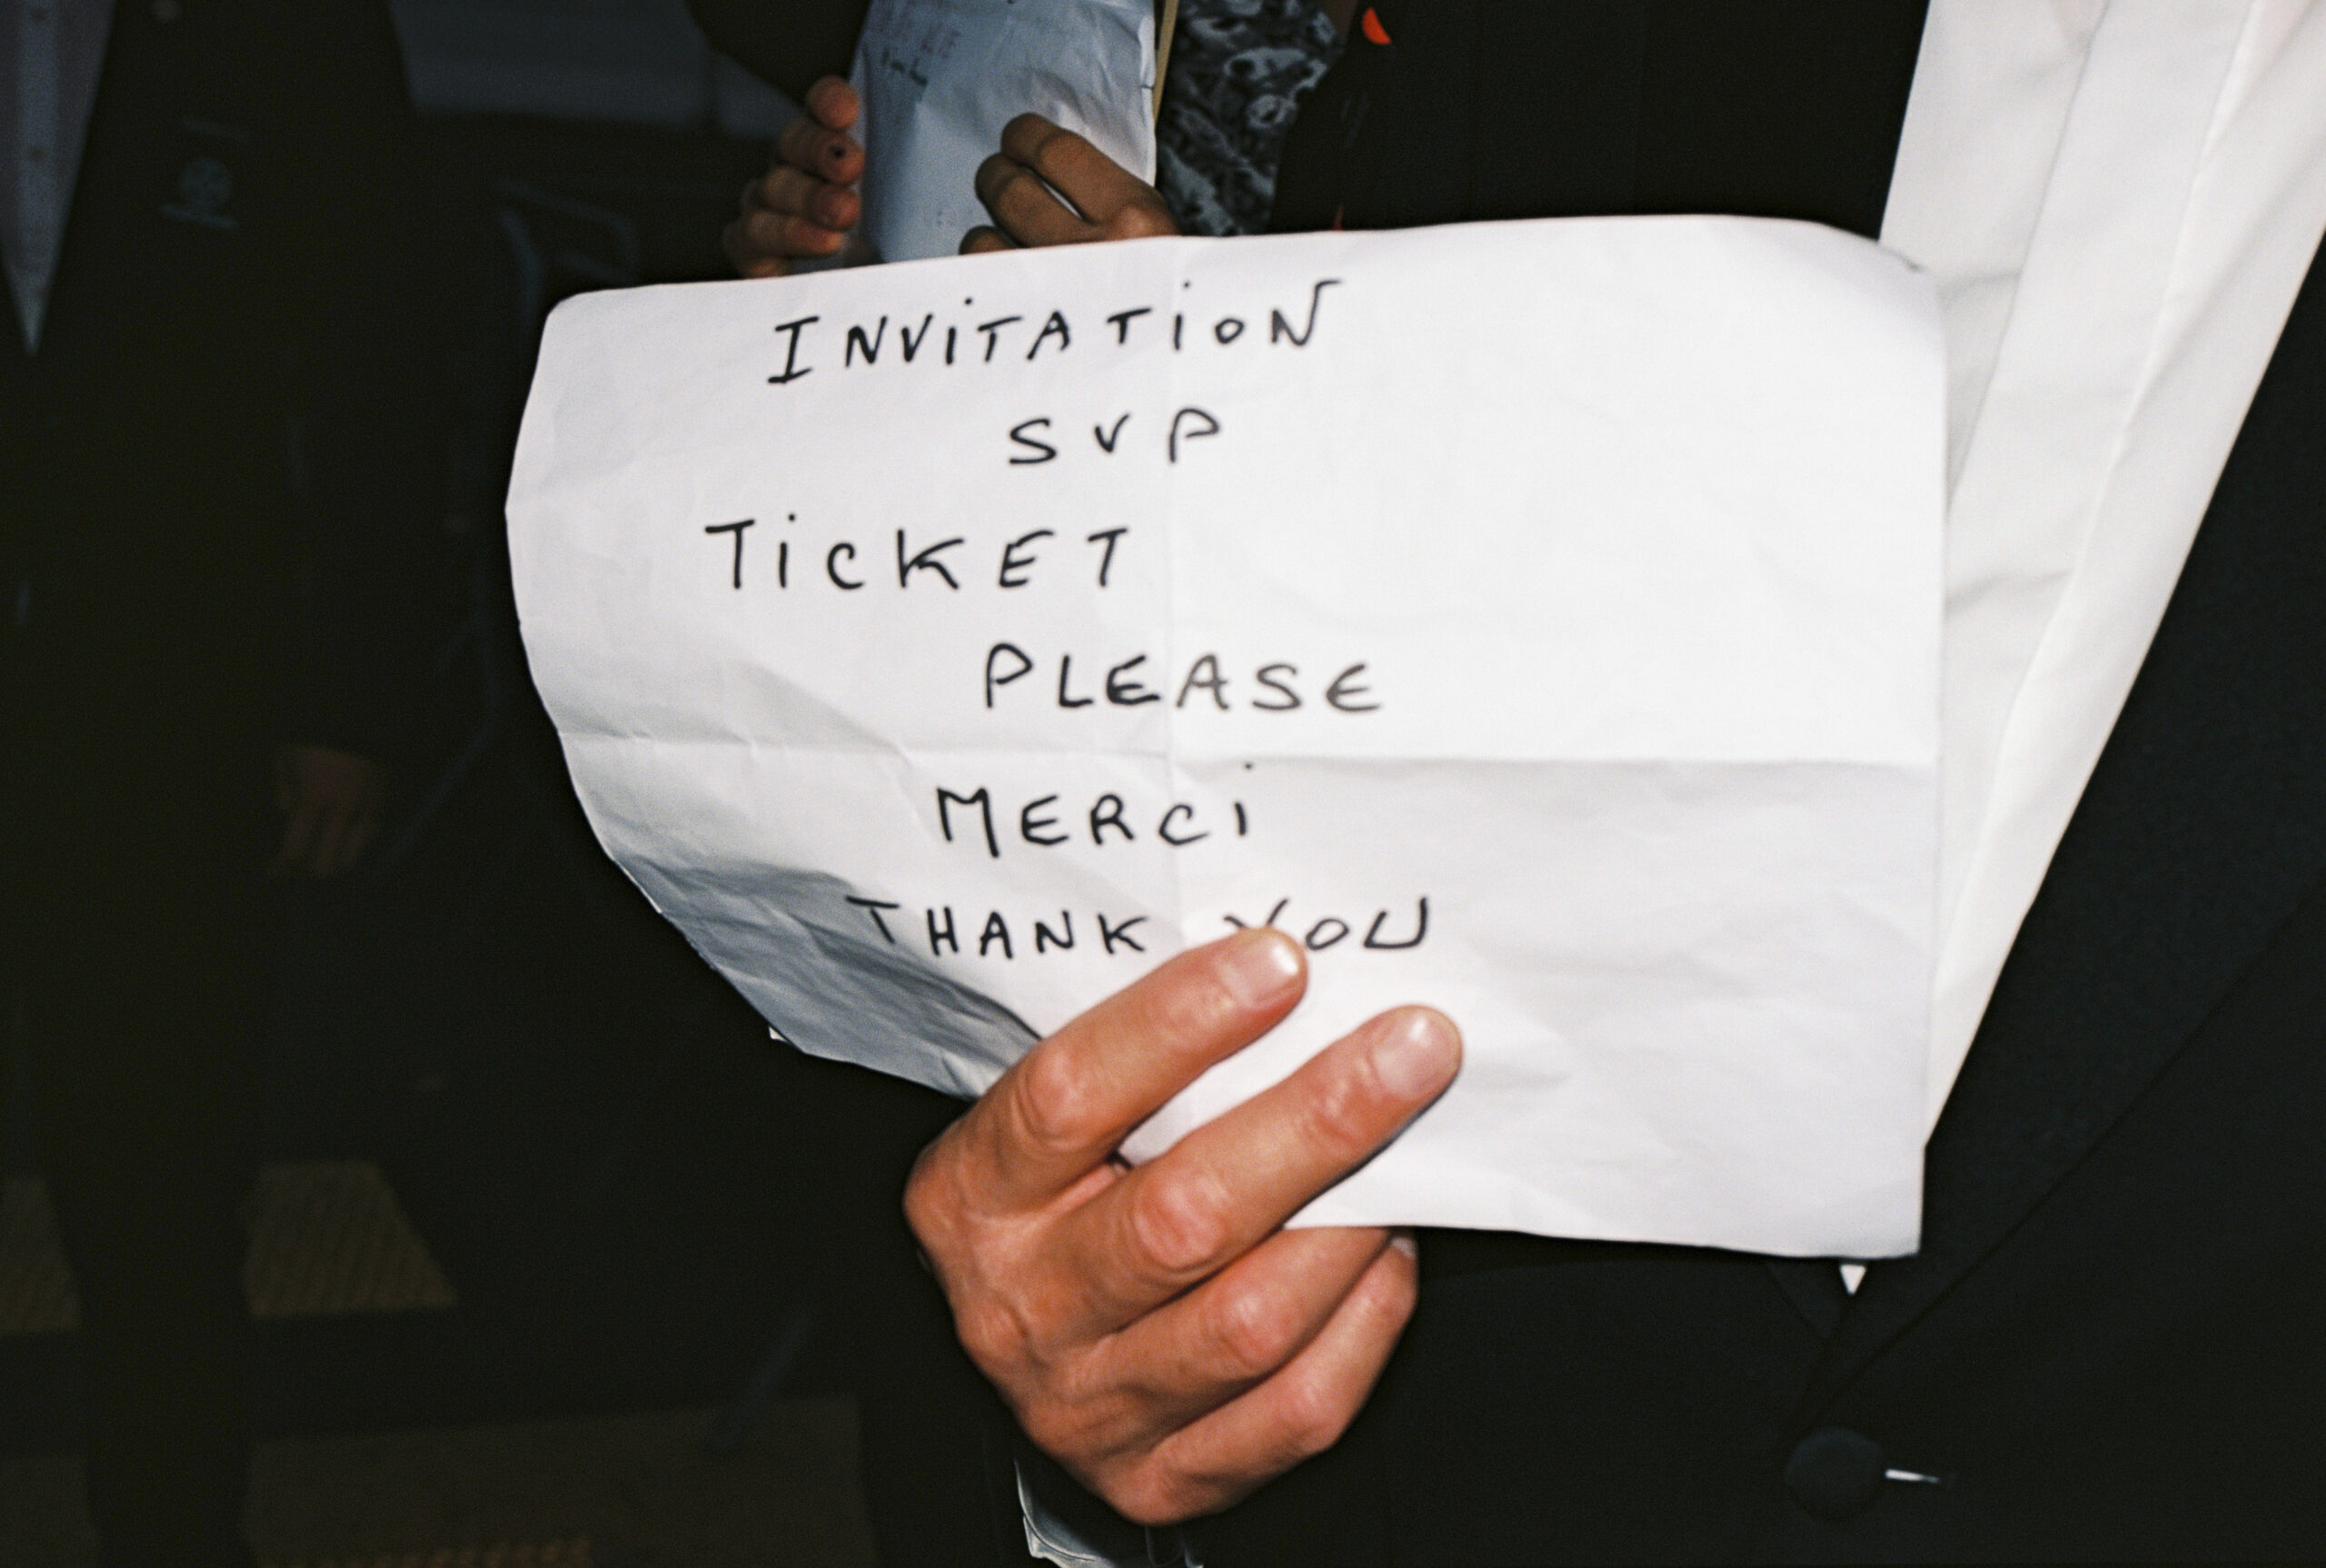 INVITATION
SVP
TICKET
PLEASE
MERCI
THANK YOU